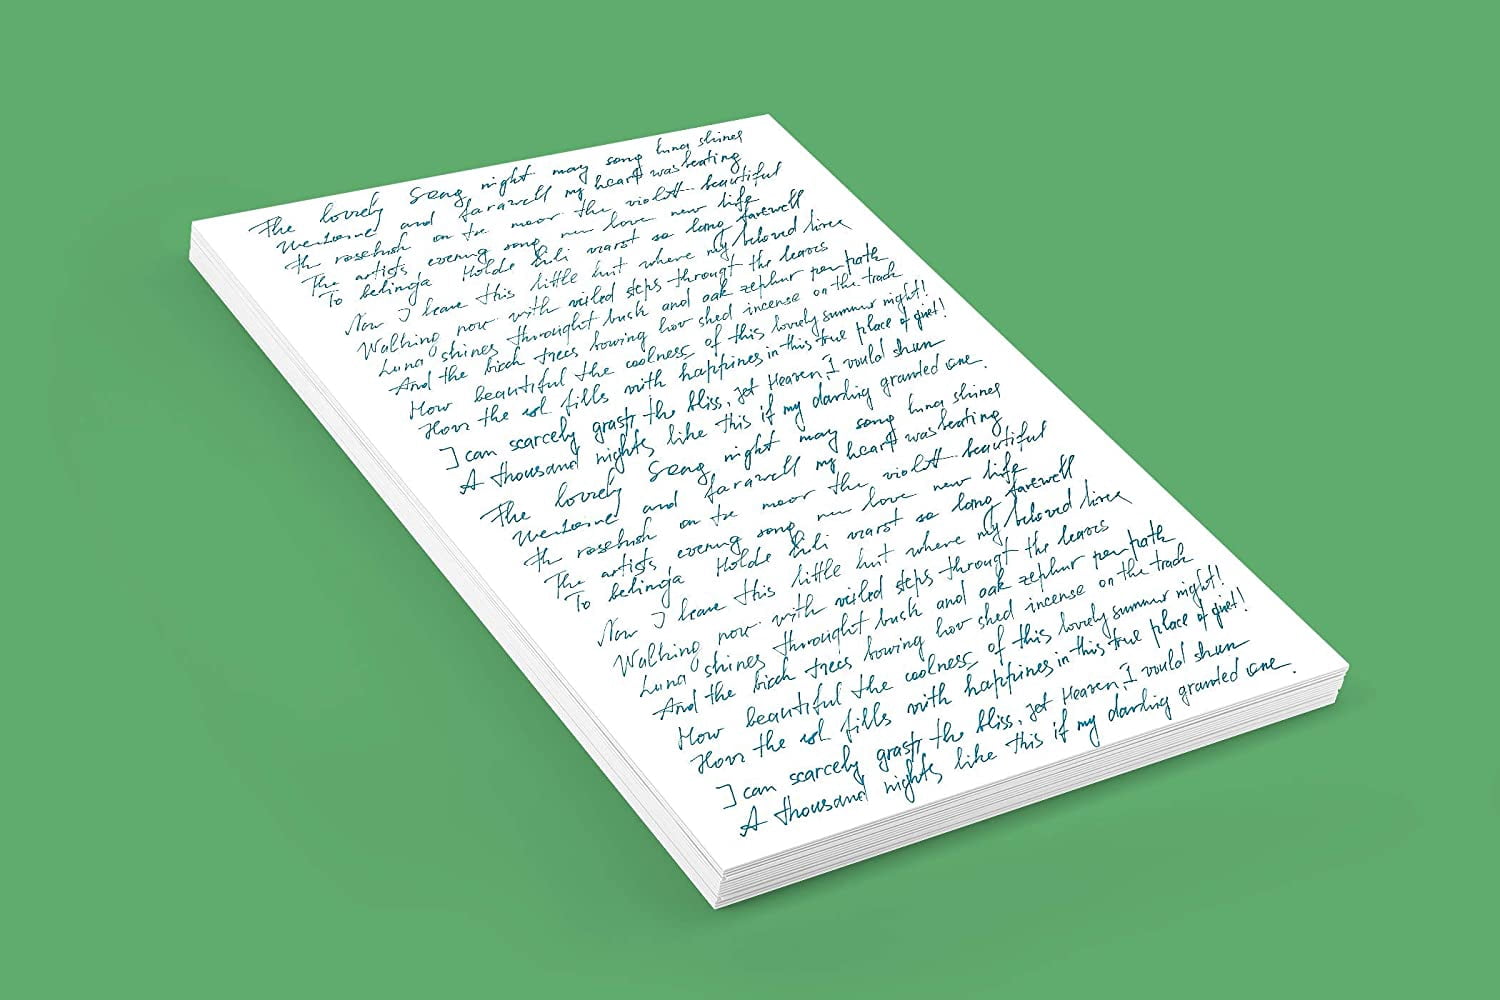 The lovely song night may song luna shines
and farawell my heart was beating
th rosebush on the moor the violett beautiful
The artists evening song new love new life
To belinda Holde Lili warst so lang farewell
Now I leave this little hut where my beloved lives
Walking now with veiled steps through the leaves
Luna shines throught bush and oak zephur per path
And the birch trees bowing hov shed incense on the track
How beautiful the coolness of this lovely summer night!
How the sol fills with happines in this true place of quiet!
I can scarcely grasp the bliss, jet Heaven, I would shun
A thousand nights like this if my darling granted one.
The lovely song night may song luna shines
and farawell my heart was beating
th rosebush on the moor the violett beautiful
The artists evening song new love new life
To belinda Holde Lili warst so lang farewell
Now I leave this little hut where my beloved lives
Walking now with veiled steps through the leaves
Luna shines throught bush and oak zephur per path
And the birch trees bowing hov shed incense on the track
How beautiful the coolness of this lovely summer night!
How the sol fills with happines in this true place of quiet!
I can scarcely grasp the bliss, jet Heaven, I would shun
A thousand nights like this if my darling granted one.